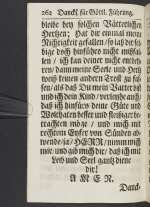 262 Danckl. für Göttl. Führung.
bleibe bey solchen Vätterlichen
Hertzen; Hat dir einmal meine
Nichtigkeit gefallen / so laß dir sie
doch hinführo nicht mißfal-
len / ich kan deiner nicht entbeh-
ren / dann meine Seele und Hertz
weiß keinen andern Trost zu fas-
sen / als daß Du mein Vatter bist
und ich dein Kind / verleihe auch /
daß ich hinfüro deine Güte und
Wolthaten besser und fleißiger be-
trachten möge / und mich mit
rechtem Eyfer von Sünden ab-
wende / ja / HERR / nimm mich
mir / und gib mich dir / daß ich mit
Leib und Seel gantz diene
dir!
A M E N.
Danck-